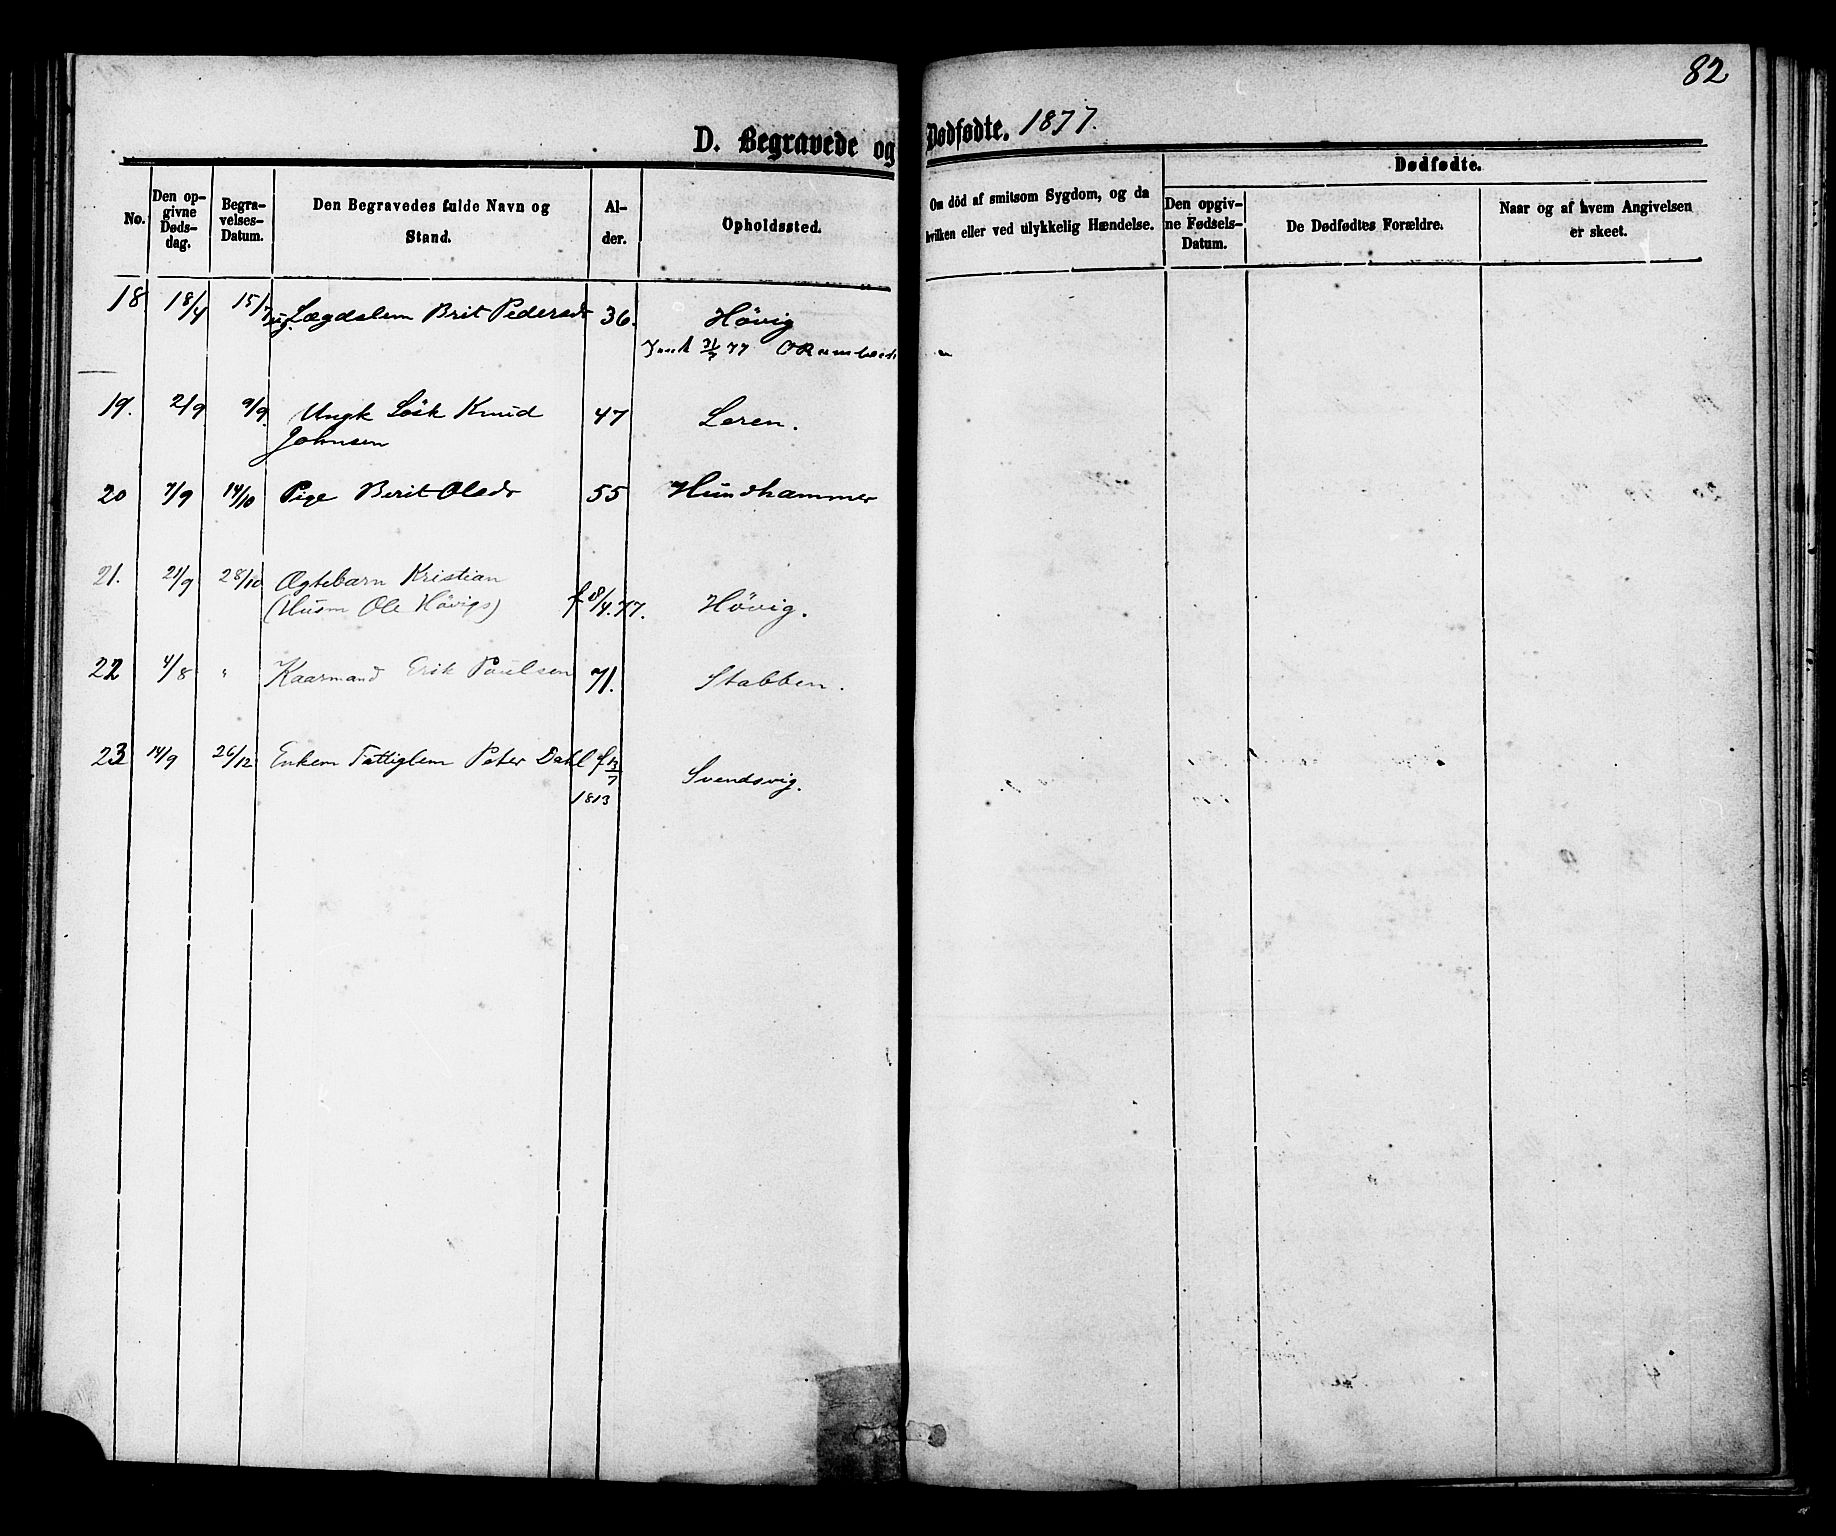 82
D. Begravede og Dødfødte. 1877.
No.
Den opgivne Dødsdag.
Begravelses-Datum.
Den Begravedes fulde Navn og Stand.
Alder.
Opholdssted.
Om död af smitsom Sygdom, og da hvilken eller ved ulykkelig Hændelse.
Dødfødte.
Den opgivne Fødsels-Datum.
De Dødfødtes Forældre.
Naar og af hvem Angivelsen er skeet.
18 18/4 15/7 Lægdslem Brit Pedersdr 36. Hövig
77
19. 2/9 9/9. Ungk Lösk Knud 47 Leren.
Johnsen
20 7/9 14/10 Pige Berit Olsdr 55 Hundhammer
21. 21/9 28/10 Ægtebarn Kristian
(Husm Ole Hövigs) f 8/4.77. Hövig.
22 4/8 " Kaarmand Erik Paulsen 71. Stabben.
23 14/9 26/12 Enkem Fattiglem Peter Dahl f 13/7 Svendsvig.
1813